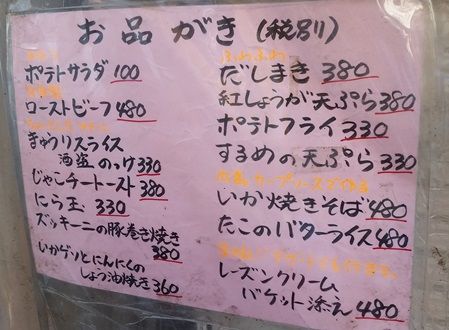 お品がき(税別)
ポテトサラダ 100
ローストビーフ 480
きゅうりスライス
酒盗のっけ 330
じゃこチートースト 380
にら玉 330
ズッキーニの豚巻き焼き
380
いかゲソとにんにくの
しょう油焼き 360
ふわふわ
だしまき 380
紅しょうが天ぷら 380
ポテトフライ 330
するめの天ぷら 330
いか焼きそば 480
たこのバターライス 480
レーズンクリーム
バケット添え 480